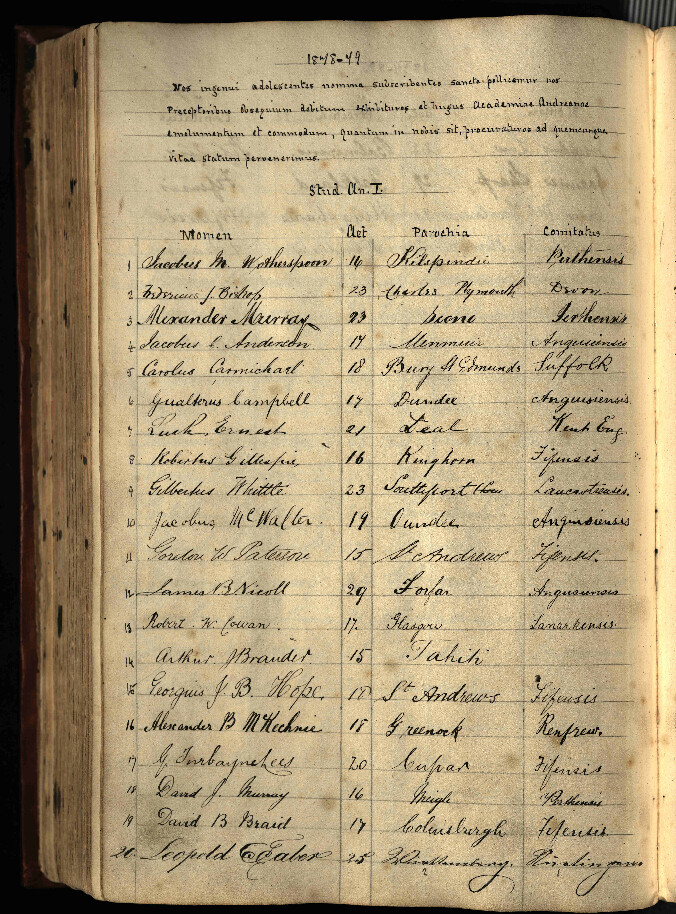 1878-79
Nos ingenui adolescentes nomina subscribentes sancte pollicemur nos
Praeceptoribus obsequium debitum exhibituros et hujus Academiae Andreanae
emolumentum et commodum, quantum in nobis sit, procuraturos ad quemcunque
vitae statum pervenerimus.
Stud. An. I.
Nomen Aet Parochia Comitatus
1 Jacobus M. Wotherspoon 16 Kilspindie Perthensis
2 Fredericus J. Bishop 23 Charles Plymouth Devon
3 Alexander Murray 23 Perthensis
4 Jacobus C. Anderson 17 Menmuir Angusiensis
5 Carolus Carmichael 18 Bury St Edmunds Suffolk
6 Gualterus Campbell 17 Dundee Angusiensis
7 Lush, Ernest 21 Deal Kent Eng.
8 Robertus Gillespie, 16 Kinghorn Fifensis
9 Gilbertus Whittle 23 Southport
10 Jacobus McWalter. 19 Dundee Angusiensis
11 Gordon W Paterson 15 St Andrews Fifensis.
12 James B Nicoll 29 Forfar Angusiensis
13 Robert W. Cowan. 17. Glasgow Lanarkensis
14 Arthur J Brander. 15 Tahiti
15 Georgius J. B. Hope. 18 St Andrews Fifensis
16 Alexander B McKechnie 18 Greenock Renfrew.
17 G 20 Cupar Fifensis
18 David J. Murray 16 Meigle Perthensis
19 David B Braid 17 Colinsburgh Fifensis
20. Leopold 25